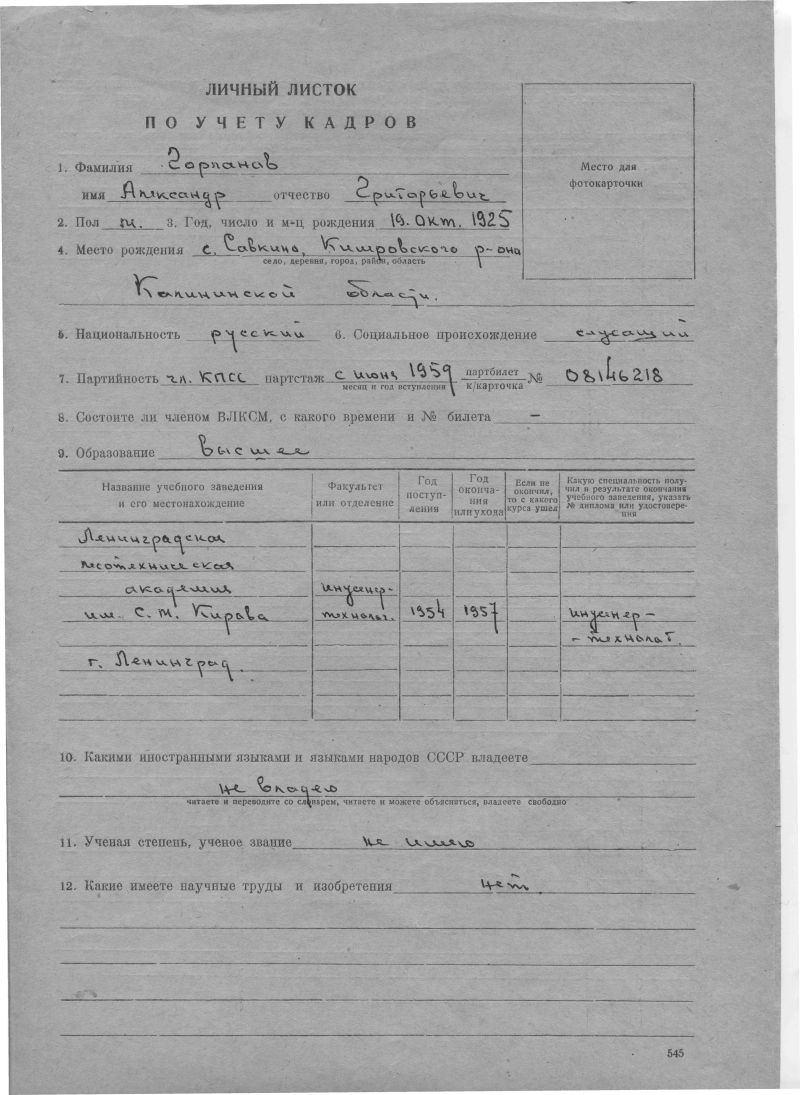 ЛИЧНЫЙ ЛИСТОК
ПО УЧЕТУ КАДРОВ
Место для
фотокарточки
1. Фамилия Горланов
имя Александр отчество Григорьевич
2. Пол м. 3. Год, число и м-ц рождения 19. окт. 1925
4. Место рождения с. Савкино, Кимровского р-она
село, деревня, город, район, область
Калининской области.
5. Национальность русский 6. Социальное происхождение служащий
7. Партийность чл. КПСС партстаж с июня 1959 партбилет к/карточка № 08146218
месяц и год вступления
8. Состоите ли членом ВЛКСМ, с какого времени и № билета –
9. Образование высшее
Название учебного заведения и его местонахождение
Факультет или отделение
Год поступления
Год окончания или ухода
Если не окончил, то с какого курса ушел
Какую специальность получил в результате окончания учебного заведения, указать № диплома или удостоверения
Ленинградская
лесотехническая
академия инженер-
им. С. М. Кирова технолог. 1954 1957 инженер-
-технолог.
г. Ленинград.
10. Какими иностранными языками и языками народов СССР владеете
не владею
читаете и переводите со словарем, читаете и можете объясняться, владеете свободно
11. Ученая степень, ученое звание не имею
12. Какие имеете научные труды и изобретения нет.
545